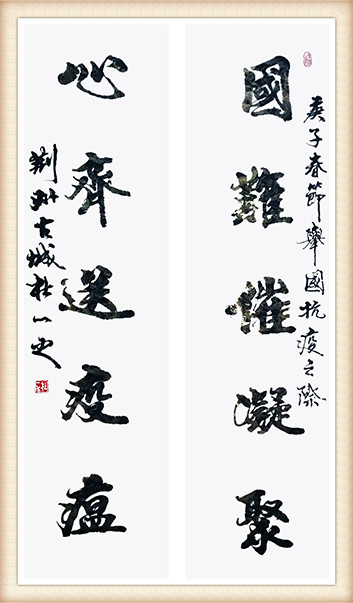 庚子春節舉國抗疫之際
國難催凝聚
心齊送疫瘟
荆州古城杜